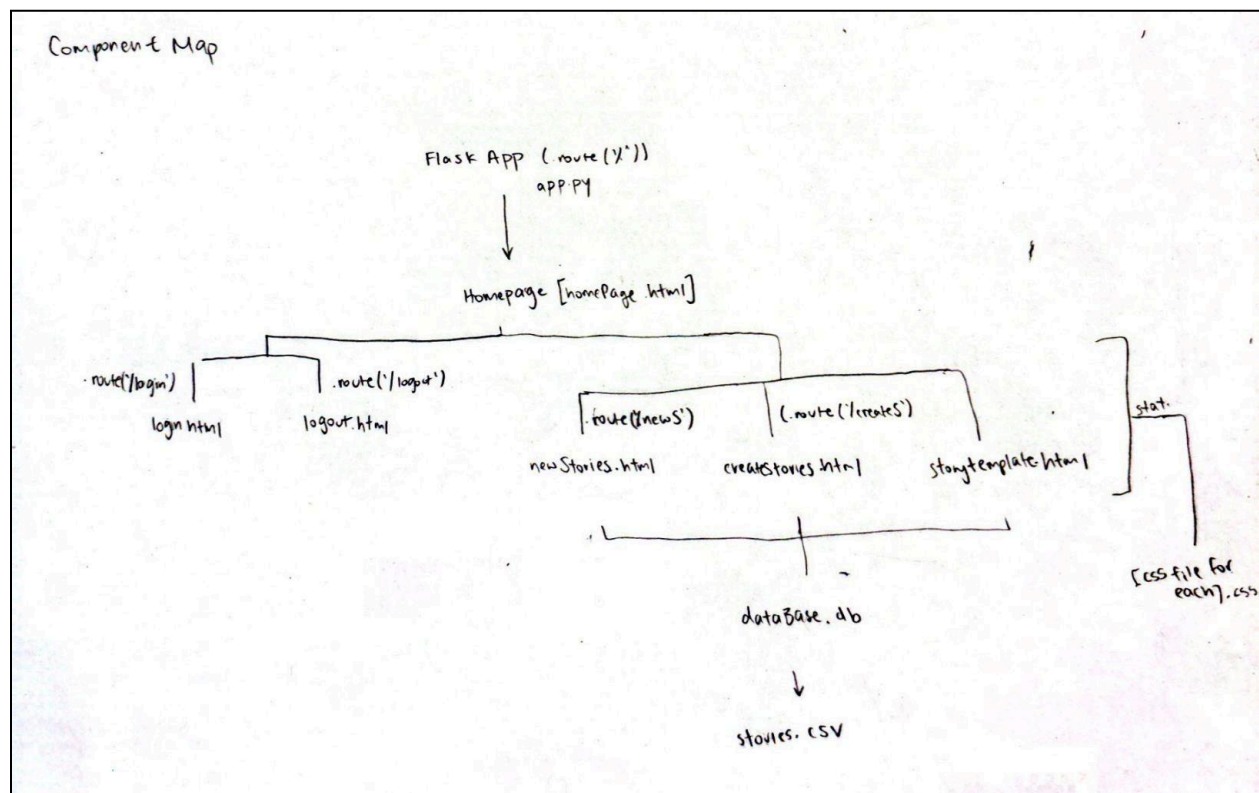 Component Map
Flask App (.route('/'))
app.py
Homepage [homePage.html]
.route('/login')
.route('/logout')
login.html
logout.html
.route('/newS')
(.route('/createS')
stat.
newStories.html
createStories.html
storytemplate.html
[css file for
each].css
dataBase.db
stories.csv